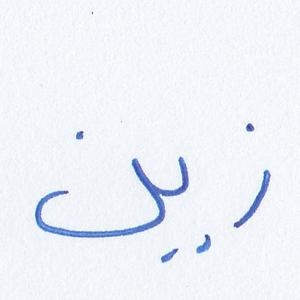 زين